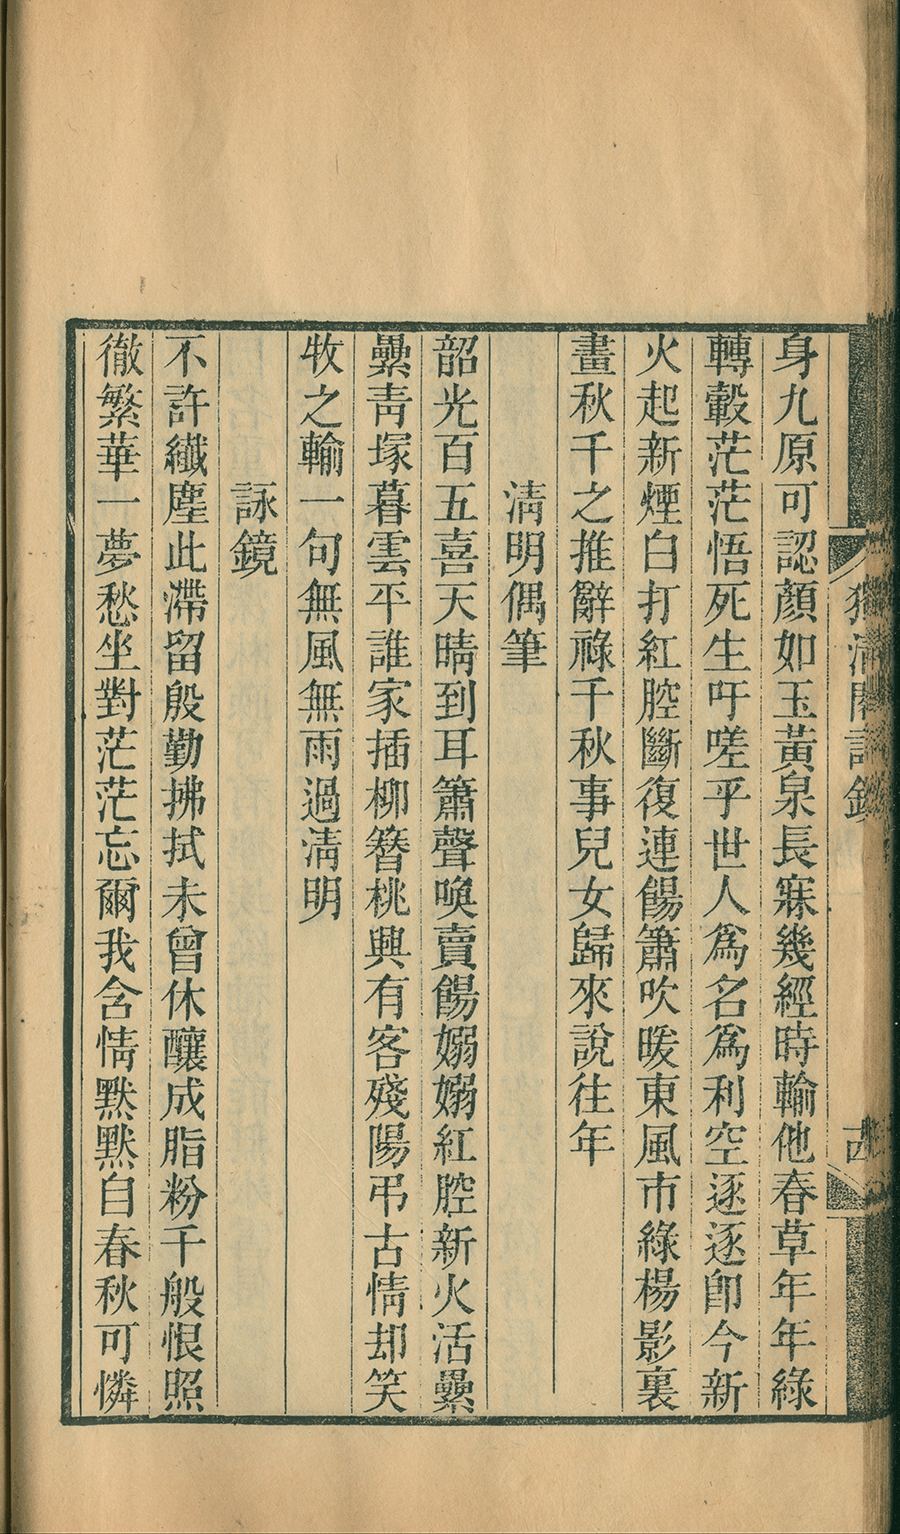 身九原可認顏如玉黃泉長寐幾經時輸他春草年年綠
轉轂茫茫悟死生吁嗟乎世人為名為利空逐逐即今新
火起新煙白打紅腔斷復連餳簫吹暖東風市綠楊影裏
畫秋千之推辭祿千秋事兒女歸來說往年
淸明偶筆
韶光百五喜天晴到耳簫聲喚賣餳嫋嫋紅腔新火活纍
纍靑塚暮雲平誰家插柳簪桃興有客殘陽弔古情却笑
牧之輸一句無風無雨過淸明
詠鏡
不許纖塵此滯留殷勤拂拭未曾休釀成脂粉千般恨照
徹繁華一夢愁坐對茫茫忘爾我含情默默自春秋可憐